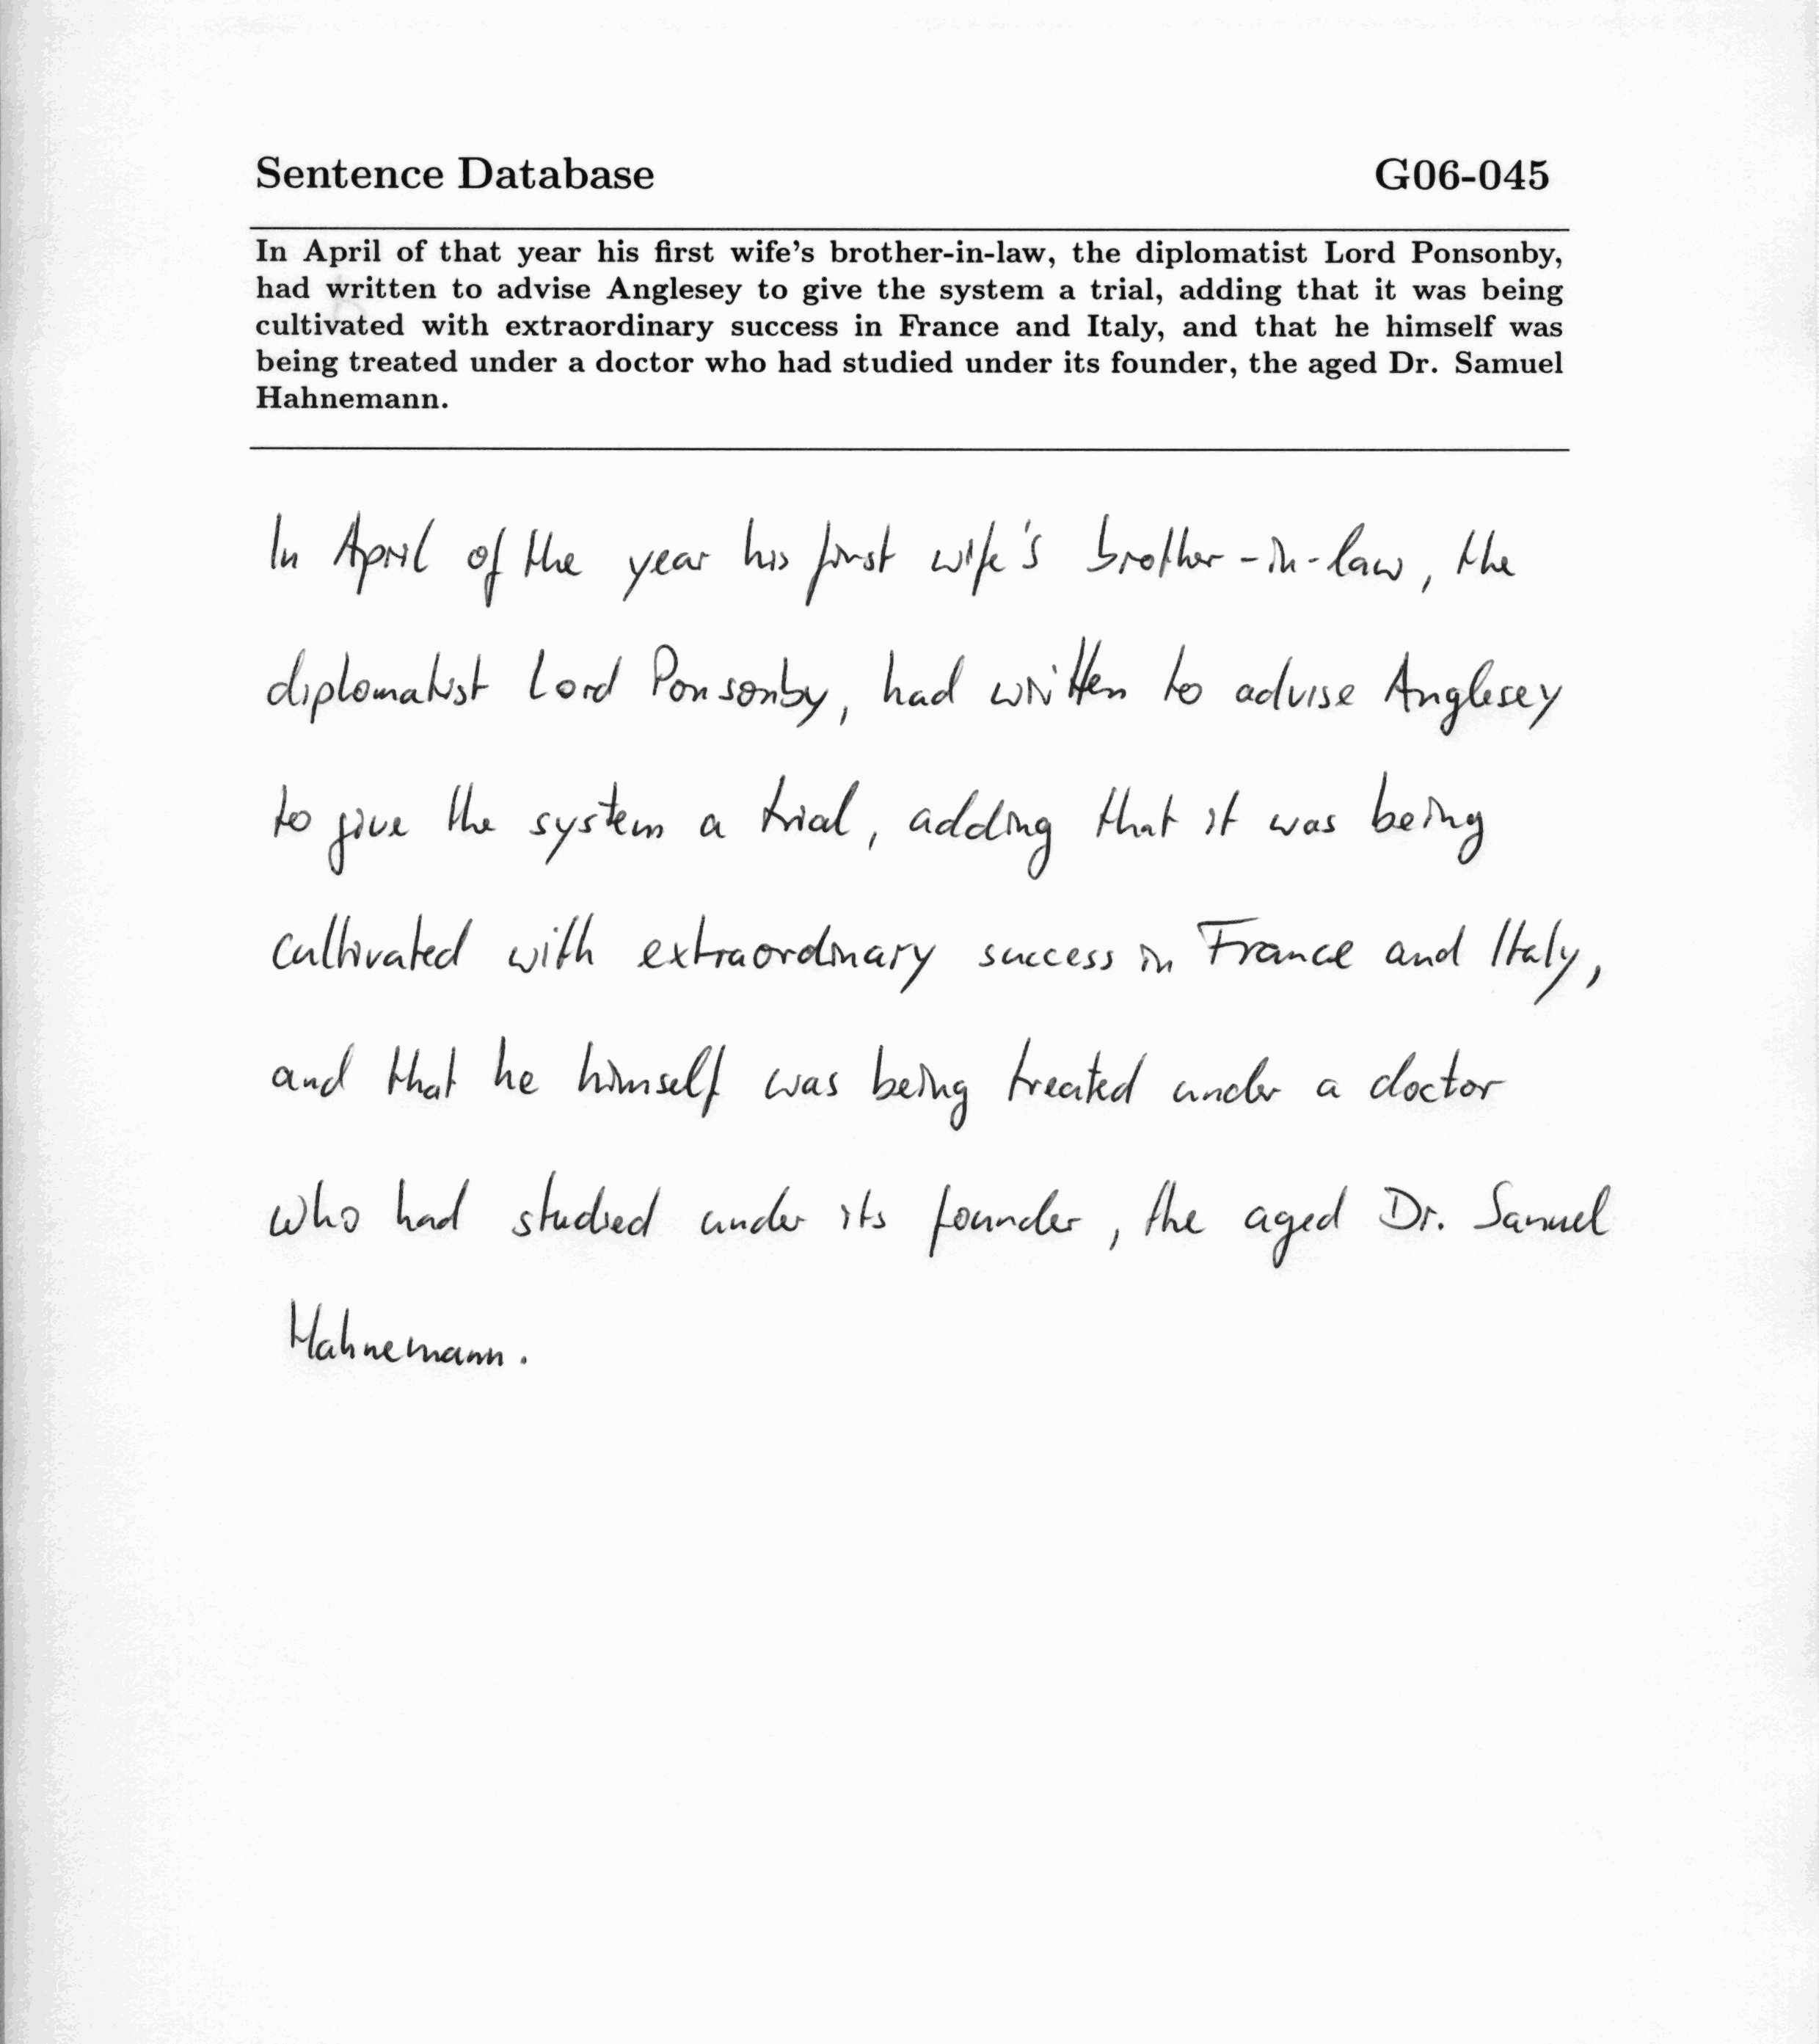 Sentence Database G06-045
In April of that year his first wife's brother-in-law, the diplomatist Lord Ponsonby,
had written to advise Anglesey to give the system a trial, adding that it was being
cultivated with extraordinary success in France and Italy, and that he himself was
being treated under a doctor who had studied under its founder, the aged Dr. Samuel
Hahnemann.
In April of the year his first wife's brother-in-law, the
diplomatist Lord Ponsonby, had written to advise Anglesey
to give the system a trial, adding that it was being
cultivated with extraordinary success in France and Italy,
and that he himself was being treated under a doctor
who had studied under its founder, the aged Dr. Samuel
Hahnemann.